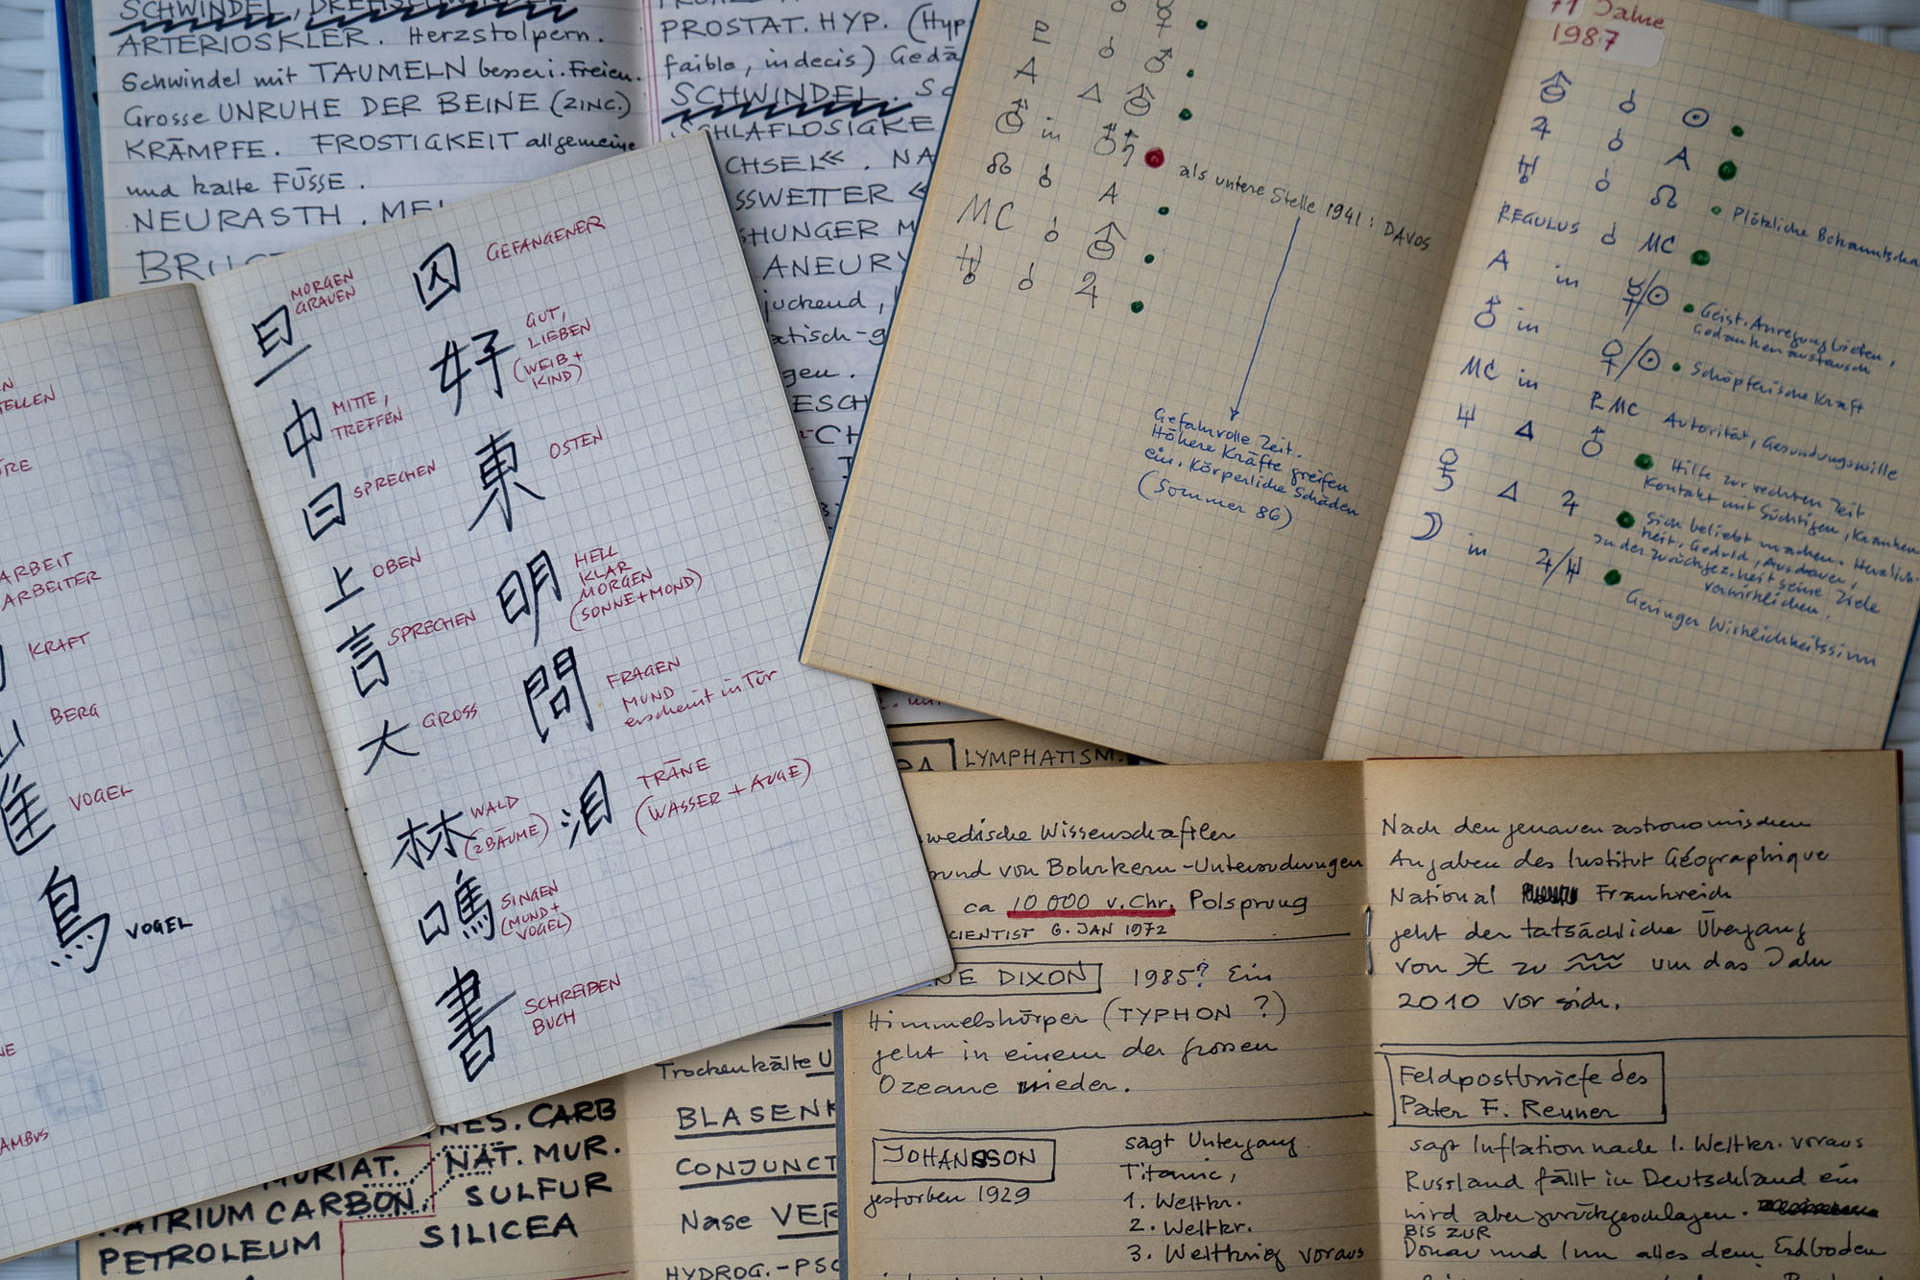 SCHWINDEL, DREHSCHWINDEL
ARTERIOSKLER. Herzstolpern.
Schwindel mit TAUMELN besser i. Freien.
Grosse UNRUHE DER BEINE (ZINC.)
KRÄMPFE. FROSTIGKEIT allgemeine
und kalte FÜSSE.
NEURASTH. MEL
PROSTAT. HYP. (Hyp
faible, indecis) Gedä
SCHWINDEL. Sc
SCHLAFLOSIGKE
CHSEL«. NA
SSWETTER «
SHUNGER M
ANEURY
juckend,
atisch-g
gen.
ESCH
CH
TELLEN
ARBEIT
ARBEITER
KRAFT
BERG
隹 VOGEL
鳥 VOGEL
AMBUS
旦 MORGEN
GRAUEN
中 MITTE,
TREFFEN
曰 SPRECHEN
上 OBEN
言 SPRECHEN
大 GROSS
林 WALD
(2 BÄUME)
鳴 SINGEN
(MUND +
VOGEL)
書 SCHREIBEN
BUCH
囚 GEFANGENER
好 GUT,
LIEBEN
(WEIB +
KIND)
東 OSTEN
明 HELL
KLAR
MORGEN
(SONNE + MOND)
問 FRAGEN
MUND
erscheint in Tür
泪 TRÄNE
(WASSER + AUGE)
in
☊ ☌ A
als untere Stelle 1941: DAVOS
MC ☌
☌ ♃
Gefahrvolle Zeit.
Höhere Kräfte greifen
ein. Körperliche Schäden
(Sommer 86)
71 Jahre
1987
☌ ☉
♃ ☌ A
♅ ☌ ☊ Plötzliche Bekanntscha
REGULUS ☌ MC
A in ☿/☉ Geist. Anregung bieten,
Gedankenaustausch
in ♀/☉ Schöpferische Kraft
MC in MC Autorität, Gesundungswille
♆ △ Hilfe zur rechten Zeit
Kontakt mit Süchtigen, Kranken
△ ♃ Sich beliebt machen. Herzlich-
keit, Geduld, Ausdauer,
in der Zurückgez.heit seine Ziele
verwirklichen.
☽ in ♃/♆ Geringer Wirklichkeitssinn
LYMPHATISM.
wedische Wissenschaftler
rund von Bohrkern-Untersuchungen
ca 10 000 v. Chr. Polsprung
CIENTIST 6. JAN 1972
NE DIXON 1985? Ein
Himmelskörper (TYPHON ?)
geht in einem der grossen
Ozeane nieder.
JOHANSSON
gestorben 1929
sagt Untergang
Titanic,
1. Weltkr.
2. Weltkr.
3. Weltkrieg voraus
Nach den genauen astronomischen
Angaben des Institut Géographique
National Frankreich
geht der tatsächliche Übergang
von ♓ zu ♒ um das Jahr
2010 vor sich.
Feldpostbriefe des
Pater F. Renner
sagt Inflation nach 1. Weltkr. voraus
Russland fällt in Deutschland ein
wird aber zurückgeschlagen.
BIS ZUR
Donau und Inn alles dem Erdboden
NES. CARB
MURIAT. NAT. MUR.
NATRIUM CARBON. SULFUR
PETROLEUM SILICEA
Trockenkälte U
BLASEN
CONJUNCT
Nase VER
HYDROG.-PSO